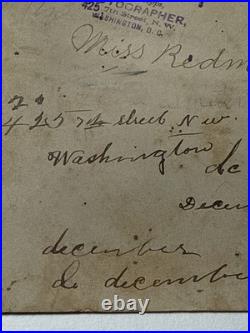 TOGRAPHER,
425 7th Street, N.W.
WASHINGTON, D.C.
Miss Redm
425 7th street N w.
Washington
dc
Decem
december
december